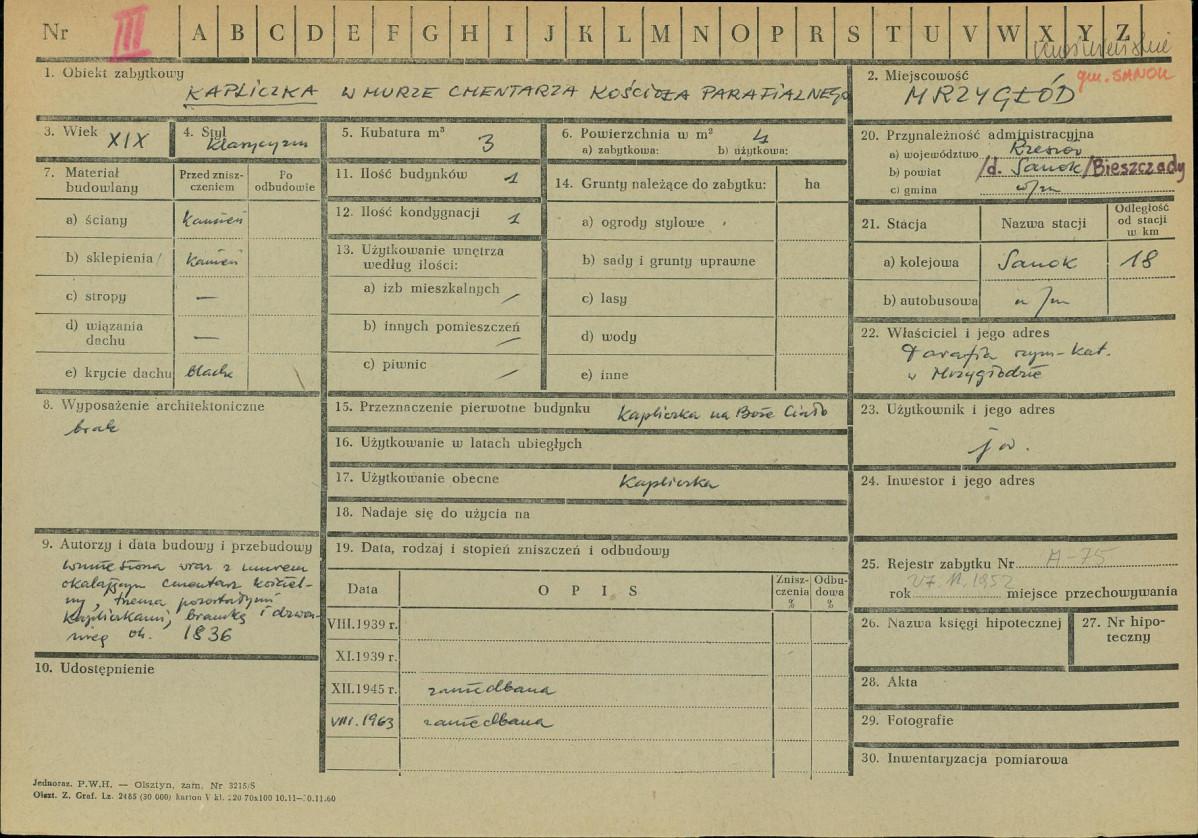 Nr III A B C D E F G H I J K L M N O P R S T U V W X Y Z
gm. SANOK
1. Obiekt zabytkowy
KAPLICZKA W MURZE CMENTARZA KOŚCIOŁA PARAFIALNEGO
2. Miejscowość
MRZYGŁÓD
3. Wiek XIX
4. Styl
klasycyzm
5. Kubatura m³ 3
6. Powierzchnia w m² 4
a) zabytkowa: b) użytkowa:
20. Przynależność administracyjna
a) województwo Rzeszów
b) powiat /d. Sanok/Bieszczady
c) gmina w/m
7. Materiał budowlany
Przed zniszczeniem
Po odbudowie
a) ściany kamień
b) sklepienia kamień
c) stropy —
d) wiązania dachu —
e) krycie dachu blacha
11. Ilość budynków 1
12. Ilość kondygnacji 1
13. Użytkowanie wnętrza
według ilości:
a) izb mieszkalnych
b) innych pomieszczeń
c) piwnic
14. Grunty należące do zabytku: ha
a) ogrody stylowe
b) sady i grunty uprawne
c) lasy
d) wody
e) inne
21. Stacja
Nazwa stacji
Odległość od stacji w km
a) kolejowa Sanok 18
b) autobusowa w/m
22. Właściciel i jego adres
Parafia rzym-kat.
w Mrzygłodzie
8. Wyposażenie architektoniczne
brak
15. Przeznaczenie pierwotne budynku kapliczka na Boże Ciało
16. Użytkowanie w latach ubiegłych
17. Użytkowanie obecne kapliczka
18. Nadaje się do użycia na
23. Użytkownik i jego adres
jw.
24. Inwestor i jego adres
9. Autorzy i data budowy i przebudowy
wzniesiona wraz z murem
okalającym cmentarz kościel-
ny, trzema pozostałymi
kapliczkami, bramką i dzwon-
nicą ok. 1836
10. Udostępnienie
19. Data, rodzaj i stopień zniszczeń i odbudowy
Data
OPIS
Zniszczenia %
Odbudowa %
VIII.1939 r.
XI.1939 r.
XII.1945 r. zaniedbana
VIII.1963 zaniedbana
25. Rejestr zabytku Nr A-75
rok 1952 miejsce przechowywania
26. Nazwa księgi hipotecznej
27. Nr hipoteczny
28. Akta
29. Fotografie
30. Inwentaryzacja pomiarowa
Jednoraz. P.W.H. — Olsztyn, zam. Nr 3215/S
Olszt. Z. Graf. Lz. 2485 (30 000) karton V kl.